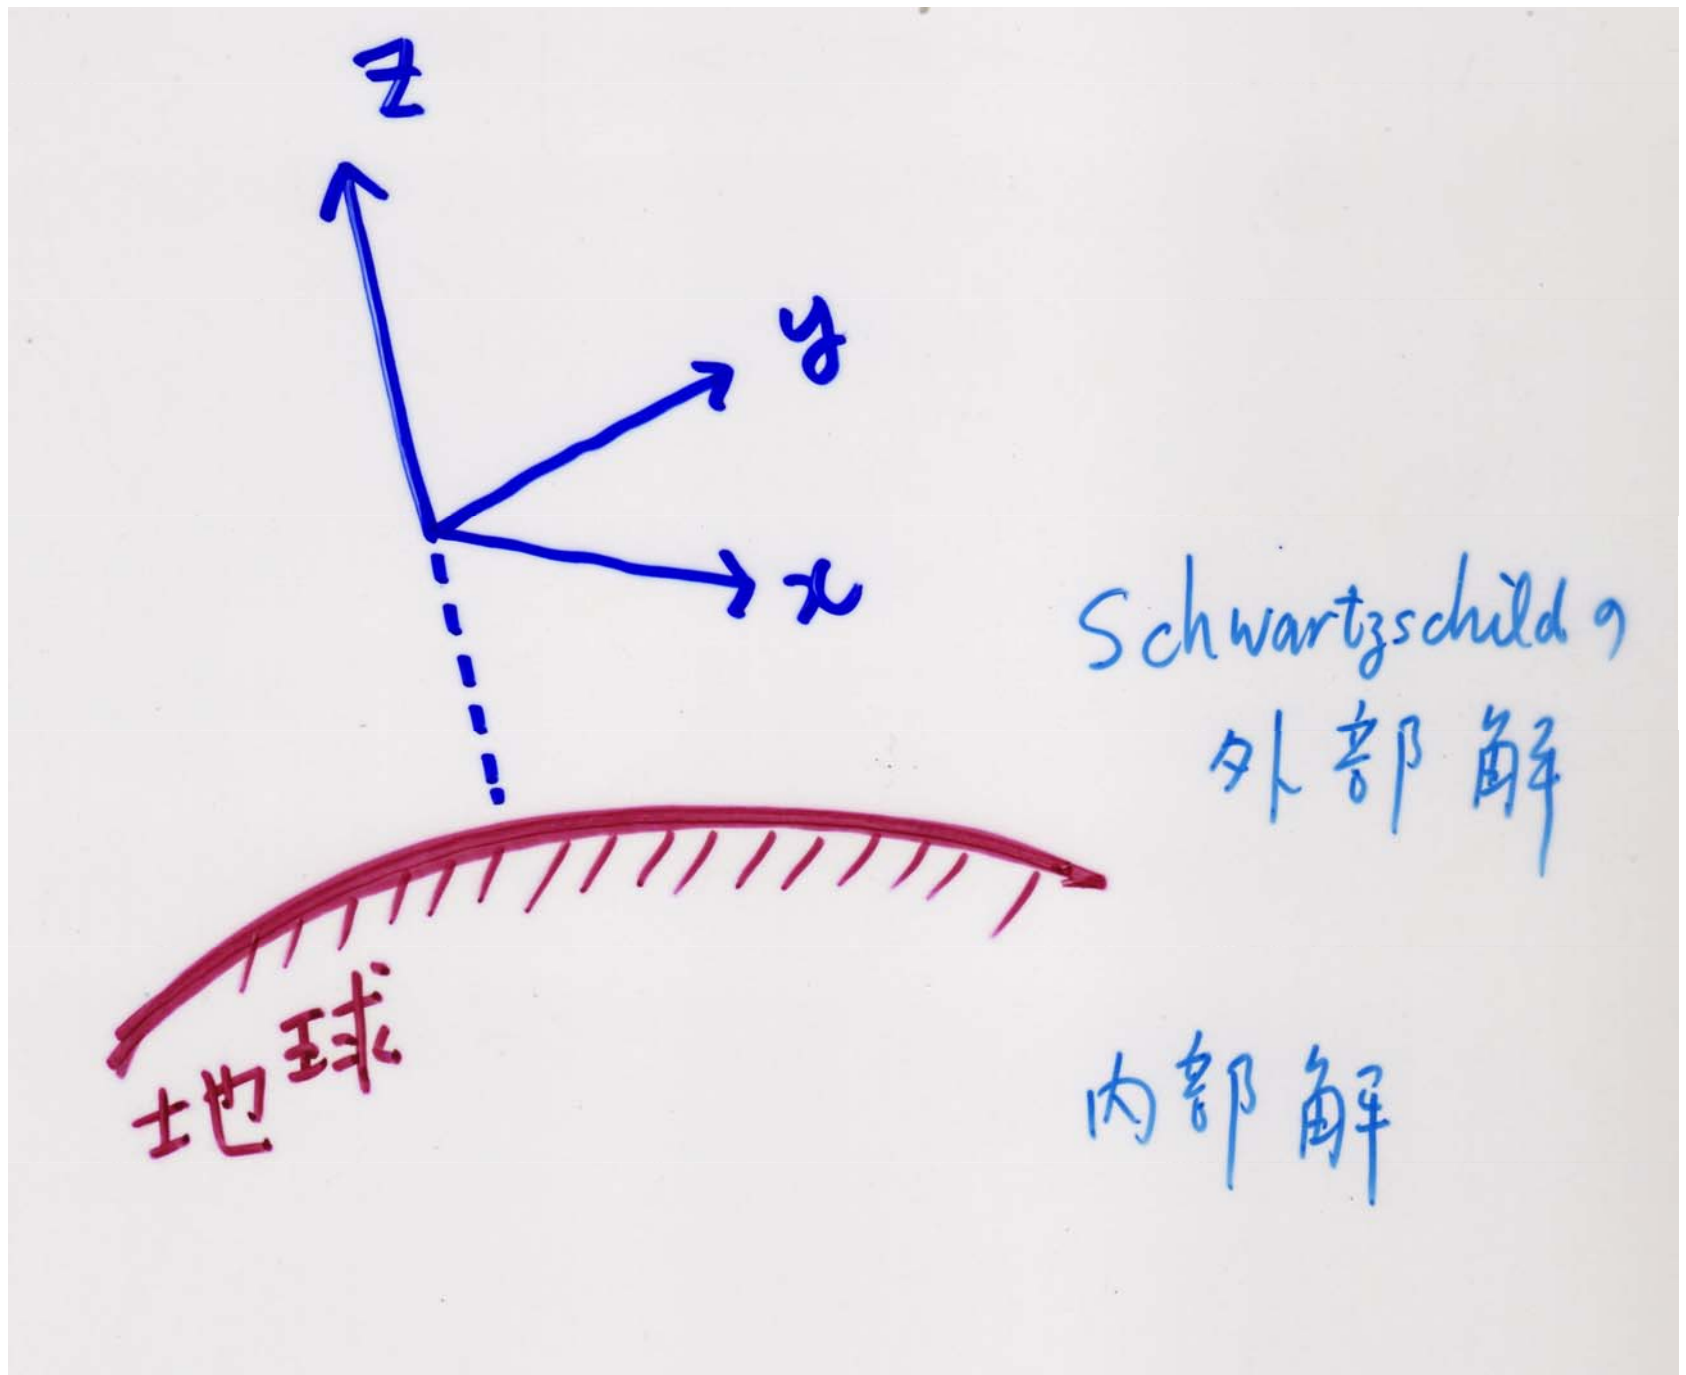 z
y
x
Schwartzschild の
外部解
地球
内部解